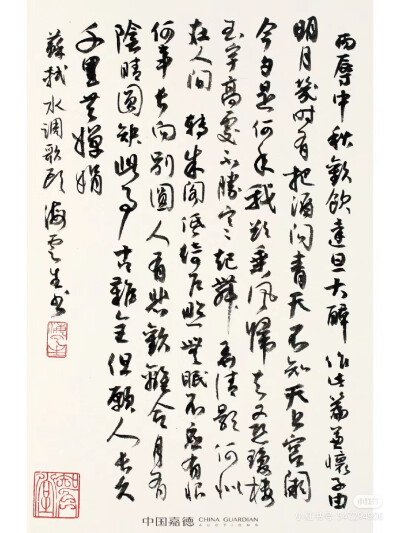 丙辰中秋歡飲達旦大醉作此篇兼懷子由
明月幾时有把酒问青天不知天上宫阙
今夕是何年我欲乘风歸去又恐瓊樓
玉宇高處不勝寒起舞弄清影何似
在人间 轉朱阁低绮户照無眠不應有恨
何事长向别圆人有悲歡離合月有
陰晴圓缺此事古難全但願人长久
千里共嬋娟
蘇軾水调歌頭 海雲生书
中国嘉德 CHINA GUARDIAN
AUCTIONS